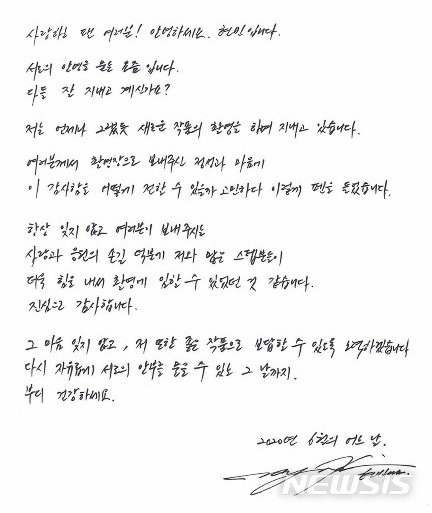 사랑하는 팬 여러분! 안녕하세요. 현빈입니다.
서로의 안녕을 묻는 요즘 입니다.
다들 잘 지내고 계신가요?
저는 언제나 그랬듯 새로운 작품의 촬영을 하며 지내고 있습니다.
여러분께서 촬영장으로 보내주신 정성과 마음에
이 감사함을 어떻게 전할 수 있을까 고민하다 이렇게 펜을 들었습니다.
항상 잊지 않고 여러분이 보내주시는
사랑과 응원의 손길 덕분에 저와 많은 스텝분들이
더욱 힘을 내서 촬영에 임할 수 있었던 것 같습니다.
진심으로 감사합니다.
그 마음 잊지 않고, 저 또한 좋은 작품으로 보답할 수 있도록 노력하겠습니다
다시 자유롭게 서로의 안부를 물을 수 있는 그 날까지.
부디 건강하세요.
2020년 6월의 어느 날.
NEWSIS